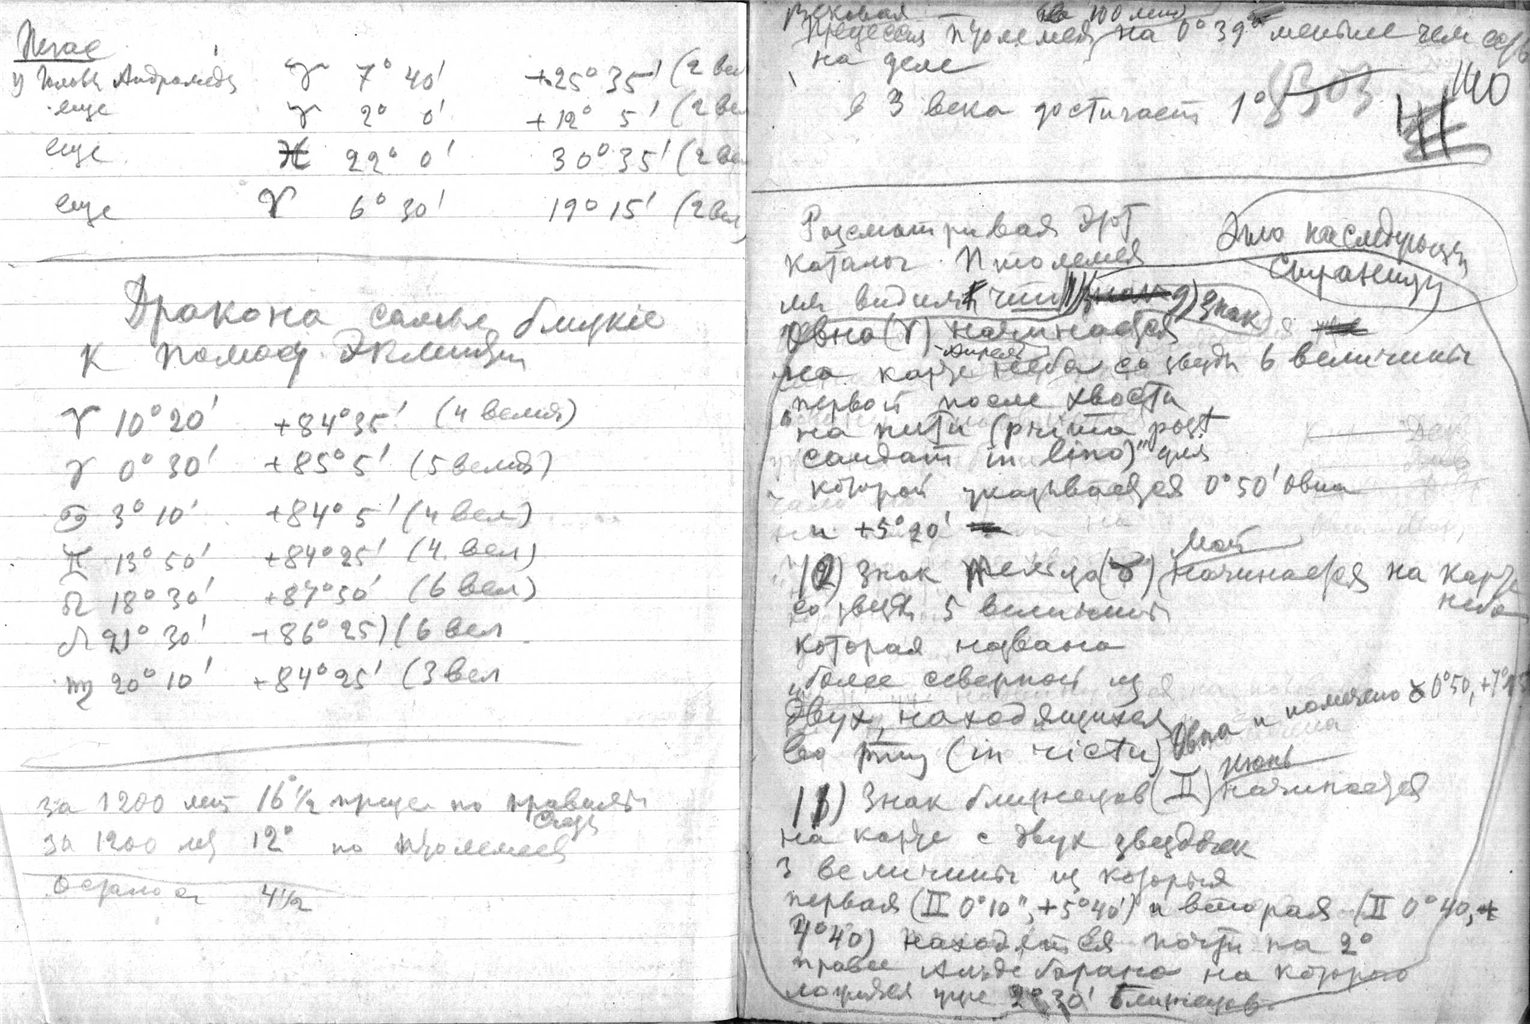 Пегас
у Головы Андромеды ♈ 7° 40' +25° 35' (2 вел
еще ♈ 2° 0' +12° 5' (2 вел
еще ♓ 22° 0' 30° 35' (2 вел
еще ♈ 6° 30' 19° 15' (2 вел)
Дракона самые близкие
к полюсу Эклипти
♈ 10° 20' +84° 35' (4 велич)
♈ 0° 30' +85° 5' (5 велич)
♋ 3° 10' +84° 5' (4 вел)
♊ 13° 50' +84° 25' (4 вел)
18° 30' +87° 30' (6 вел)
21° 30' +86° 25) (6 вел
♍ 20° 10' +84° 25' (3 вел
за 1200 лет 16 1/2 прец по правилу
за 1200 лет 12° по Птолемею
осталось 4 1/2
Вековая за 100 лет
Прецессия Птолемея на 0° 39' меньше чем
на деле
в 3 века достигает 1°
140
Рассматривая этот
каталог Птолемея
мы видим что 1) знак
Это на следующую
страницу
Овна (♈) начинается
Апрель
на карте неба со звезды 6 величины
первой после хвоста
"на нити (prima post
caudam in lino)" для
которой указывается 0° 50' Овна
и +5° 20'
Май
2) Знак Тельца (♉) начинается на карте
неба
со звезды 5 величины
которая названа
"более северной из
двух, находящихся
во рту (in rictu) Овна и помечено ♉ 0° 50, +7°
Июнь
3) Знак близнецов (♊) начинается
на карте с двух звездочек
3 величины из которых
первая (♊ 0° 10", +5° 40') и вторая (♊ 0° 40, +
4° 40) находятся почти на 2°
правее Альдебарана на которого
ложится уже 2° 30' Близнецов